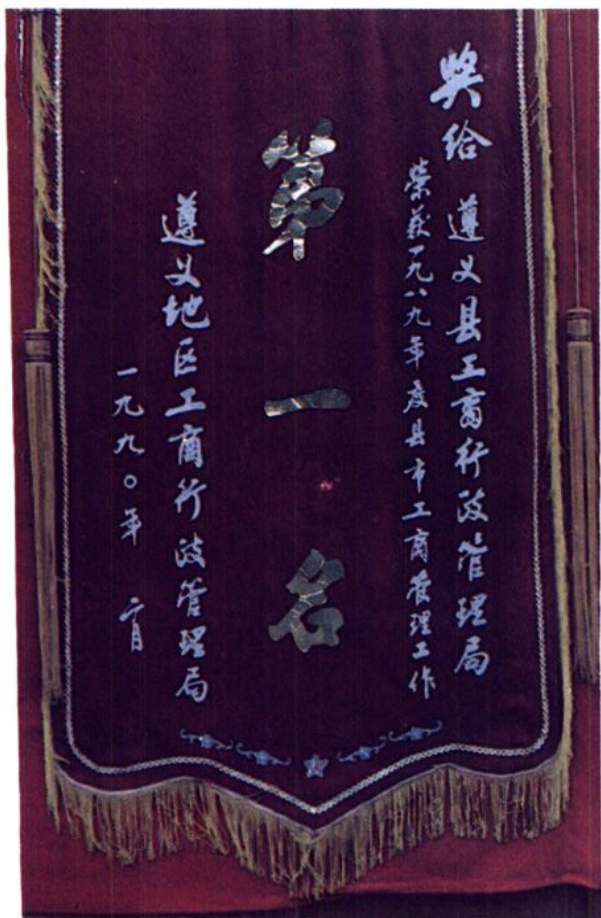 奖给 遵义县工商行政管理局
荣获一九八九年度县市工商管理工作
第一名
遵义地区工商行政管理局
一九九〇年 二月